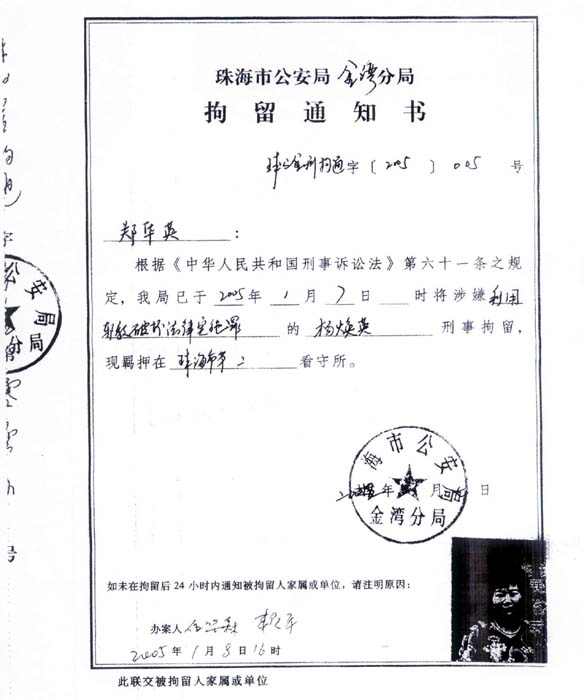 珠海市公安局金湾分局
拘留通知书
珠公金刑拘通字〔2005〕005号
郑华英：
根据《中华人民共和国刑事诉讼法》第六十一条之规
定，我局已于2005年1月7日 时将涉嫌利用
邪教破坏法律实施罪的杨焕英刑事拘留，
现羁押在珠海市第二看守所。
海市公安局
金湾分局
年 月 日
如未在拘留后24小时内通知被拘留人家属或单位，请注明原因：
办案人
2005年1月8日16时
此联交被拘留人家属或单位
安局
分局
号